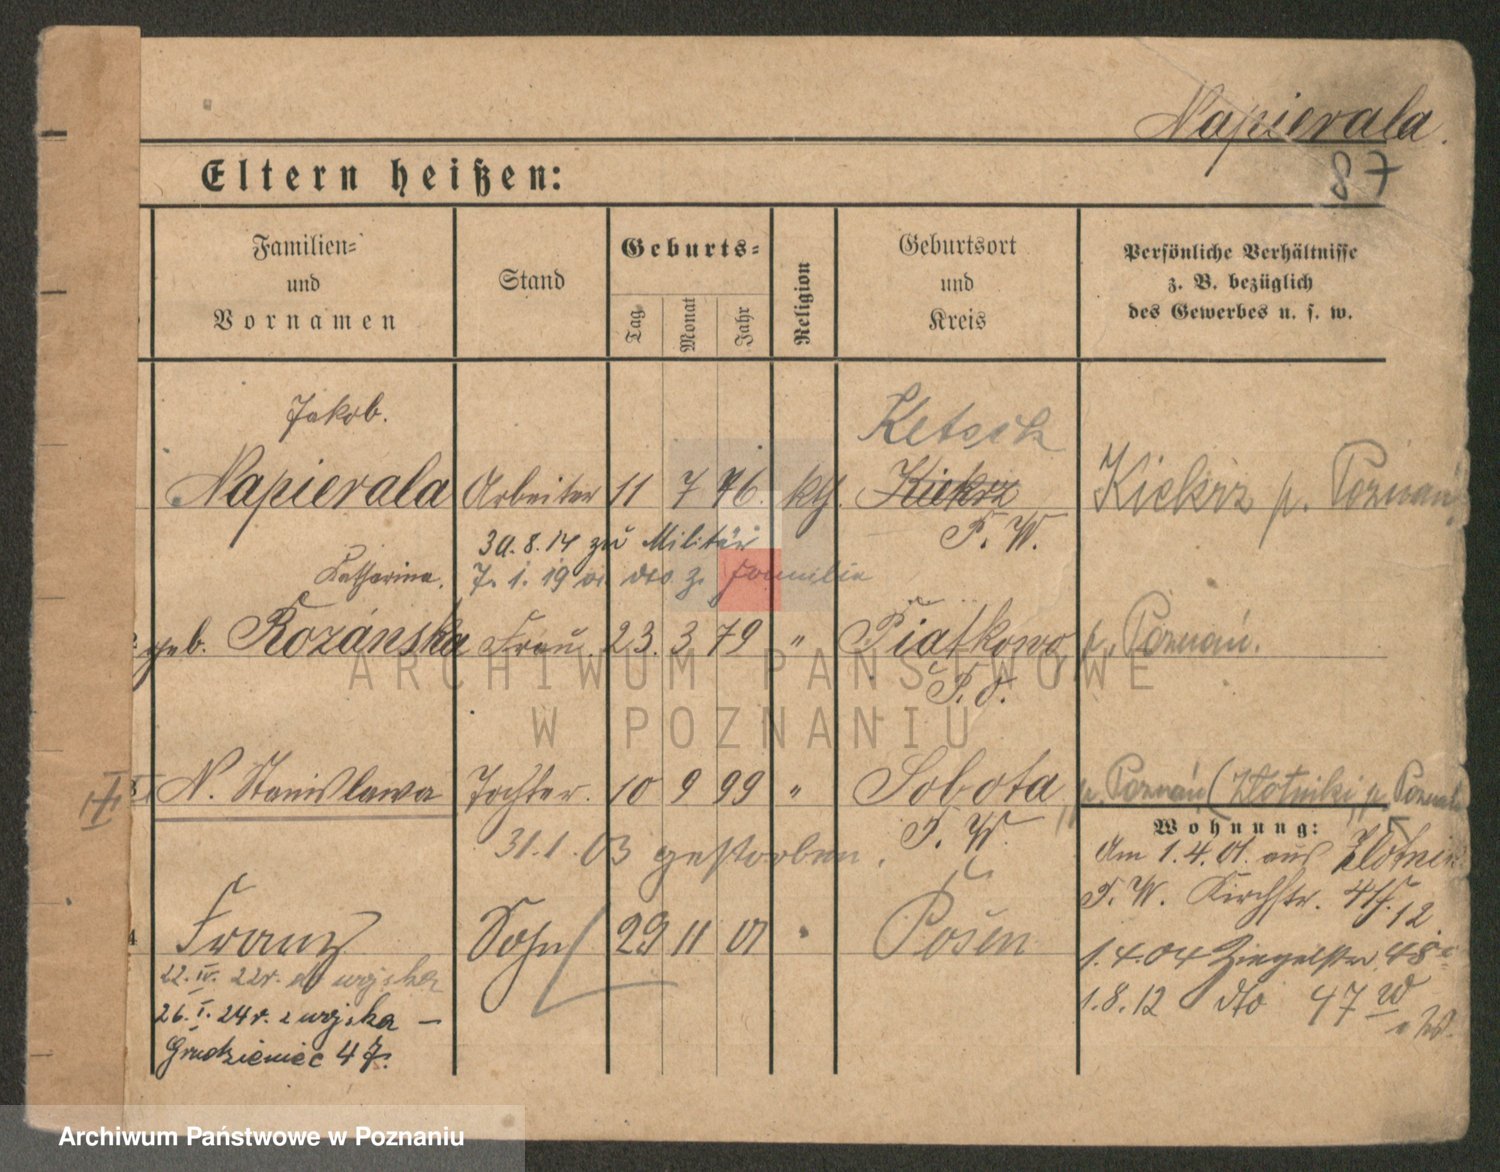 Napierala.
87
Eltern heißen:
Familien=
und
Vornamen
Stand
Geburts=
Tag
Monat
Jahr
Religion
Geburtsort
und
Kreis
Persönliche Verhältnisse
z. B. bezüglich
des Gewerbes u. s. w.
Jakob.
Ketsch
Napierala Arbeiter 11 7 76. kth. Kiekrz Kiekrz p. Poznań
P. W.
30.8.14 zu Militär
Katharina. 7. 1. 19 v. dto z. Familie
geb. Rozánska Frau 23. 3 79 " Piatkowo p. Poznań.
P. O.
N. Stanislawa Tochter. 10 9 99 " Sobota p. Poznań (Złotniki p. Poznań
P. W.
31.1.03 gestorben.
Wohnung:
Am 1.4.01. aus
P. W. Kirchstr.
4 Franz Sohn 29 11 01 " Posen
1.4.04 Ziegelstr. 48
22. IV. 22r. do wojska
1.8.12 dto 47
26. I. 24r. z wojska –
Grudzieniec 47.
ARCHIWUM PAŃSTWOWE
W POZNANIU
Archiwum Państwowe w Poznaniu